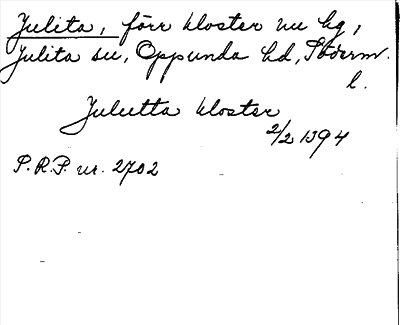 Julita, förr kloster nu kg,
Julita sn, Oppunda hd, Söderm.
l.
Julitta kloster
2/2 1394
P.R.P. nr. 2702